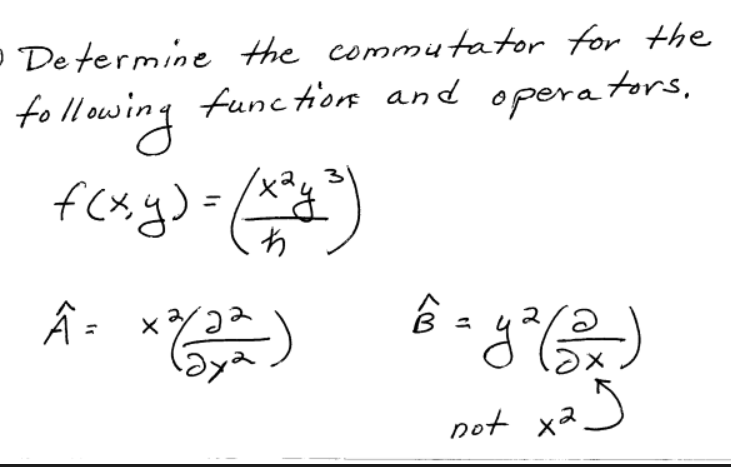 Determine the commutator for the
following functions and operators.
f(x,y) = (x²y³/ℏ)
Â = x²(∂²/∂y²) B̂ = y²(∂/∂x)
not x²